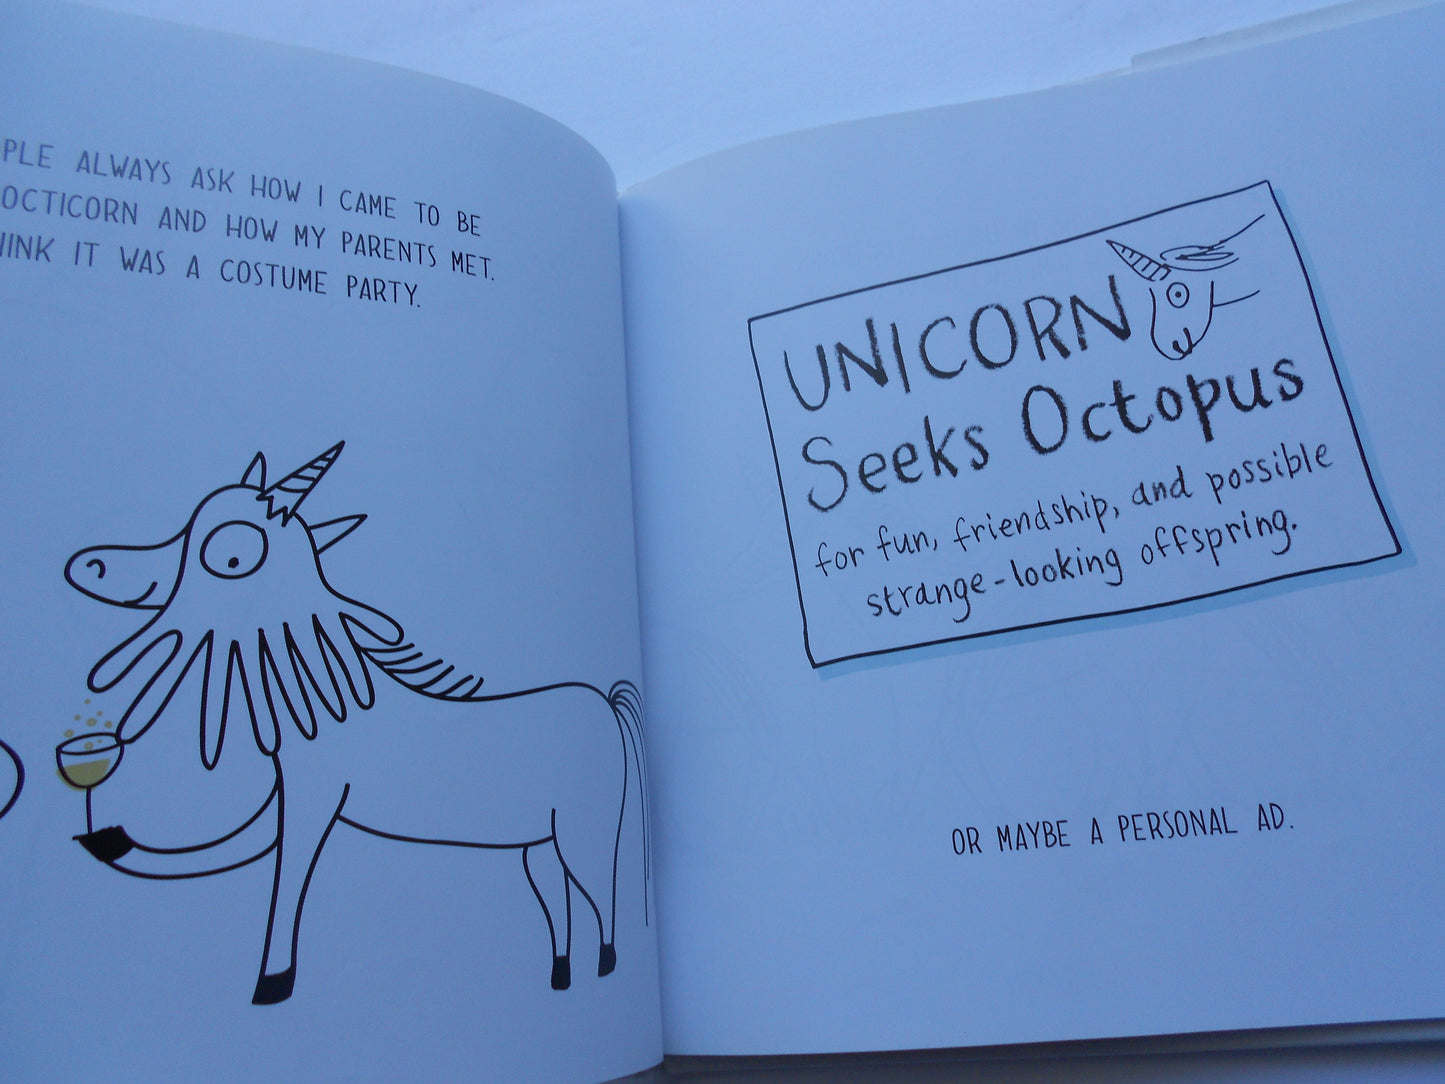 PLE ALWAYS ASK HOW I CAME TO BE
OCTICORN AND HOW MY PARENTS MET.
INK IT WAS A COSTUME PARTY.
UNICORN
Seeks Octopus
for fun, friendship, and possible
strange-looking offspring.
OR MAYBE A PERSONAL AD.